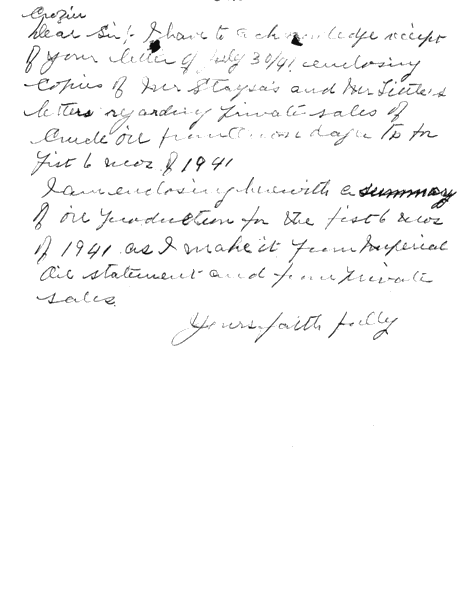 Crozier
Dear Sir:- I have to acknowledge receipt
of your letter of July 30/41, enclosing
copies of Mr and Mr Little's
letters regarding private sales of
Crude oil from Onondaga Tp for
fist 6 mos of 1941
I am enclosing herewith a summary
of oil production for the fist 6 mos
of 1941 as I make it from Imperial
Oil statement and from private
sales.
Yours faithfully